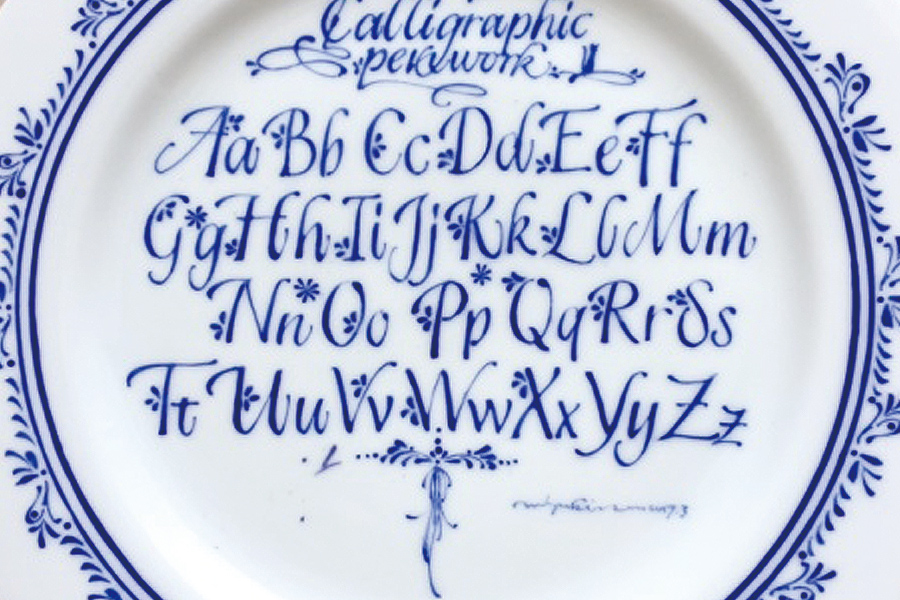 Calligraphic
penwork
Aa Bb Cc Dd Ee Ff
Gg Hh Ii Jj Kk Ll Mm
Nn Oo Pp Qq Rr Ss
Tt Uu Vv Ww Xx Yy Zz